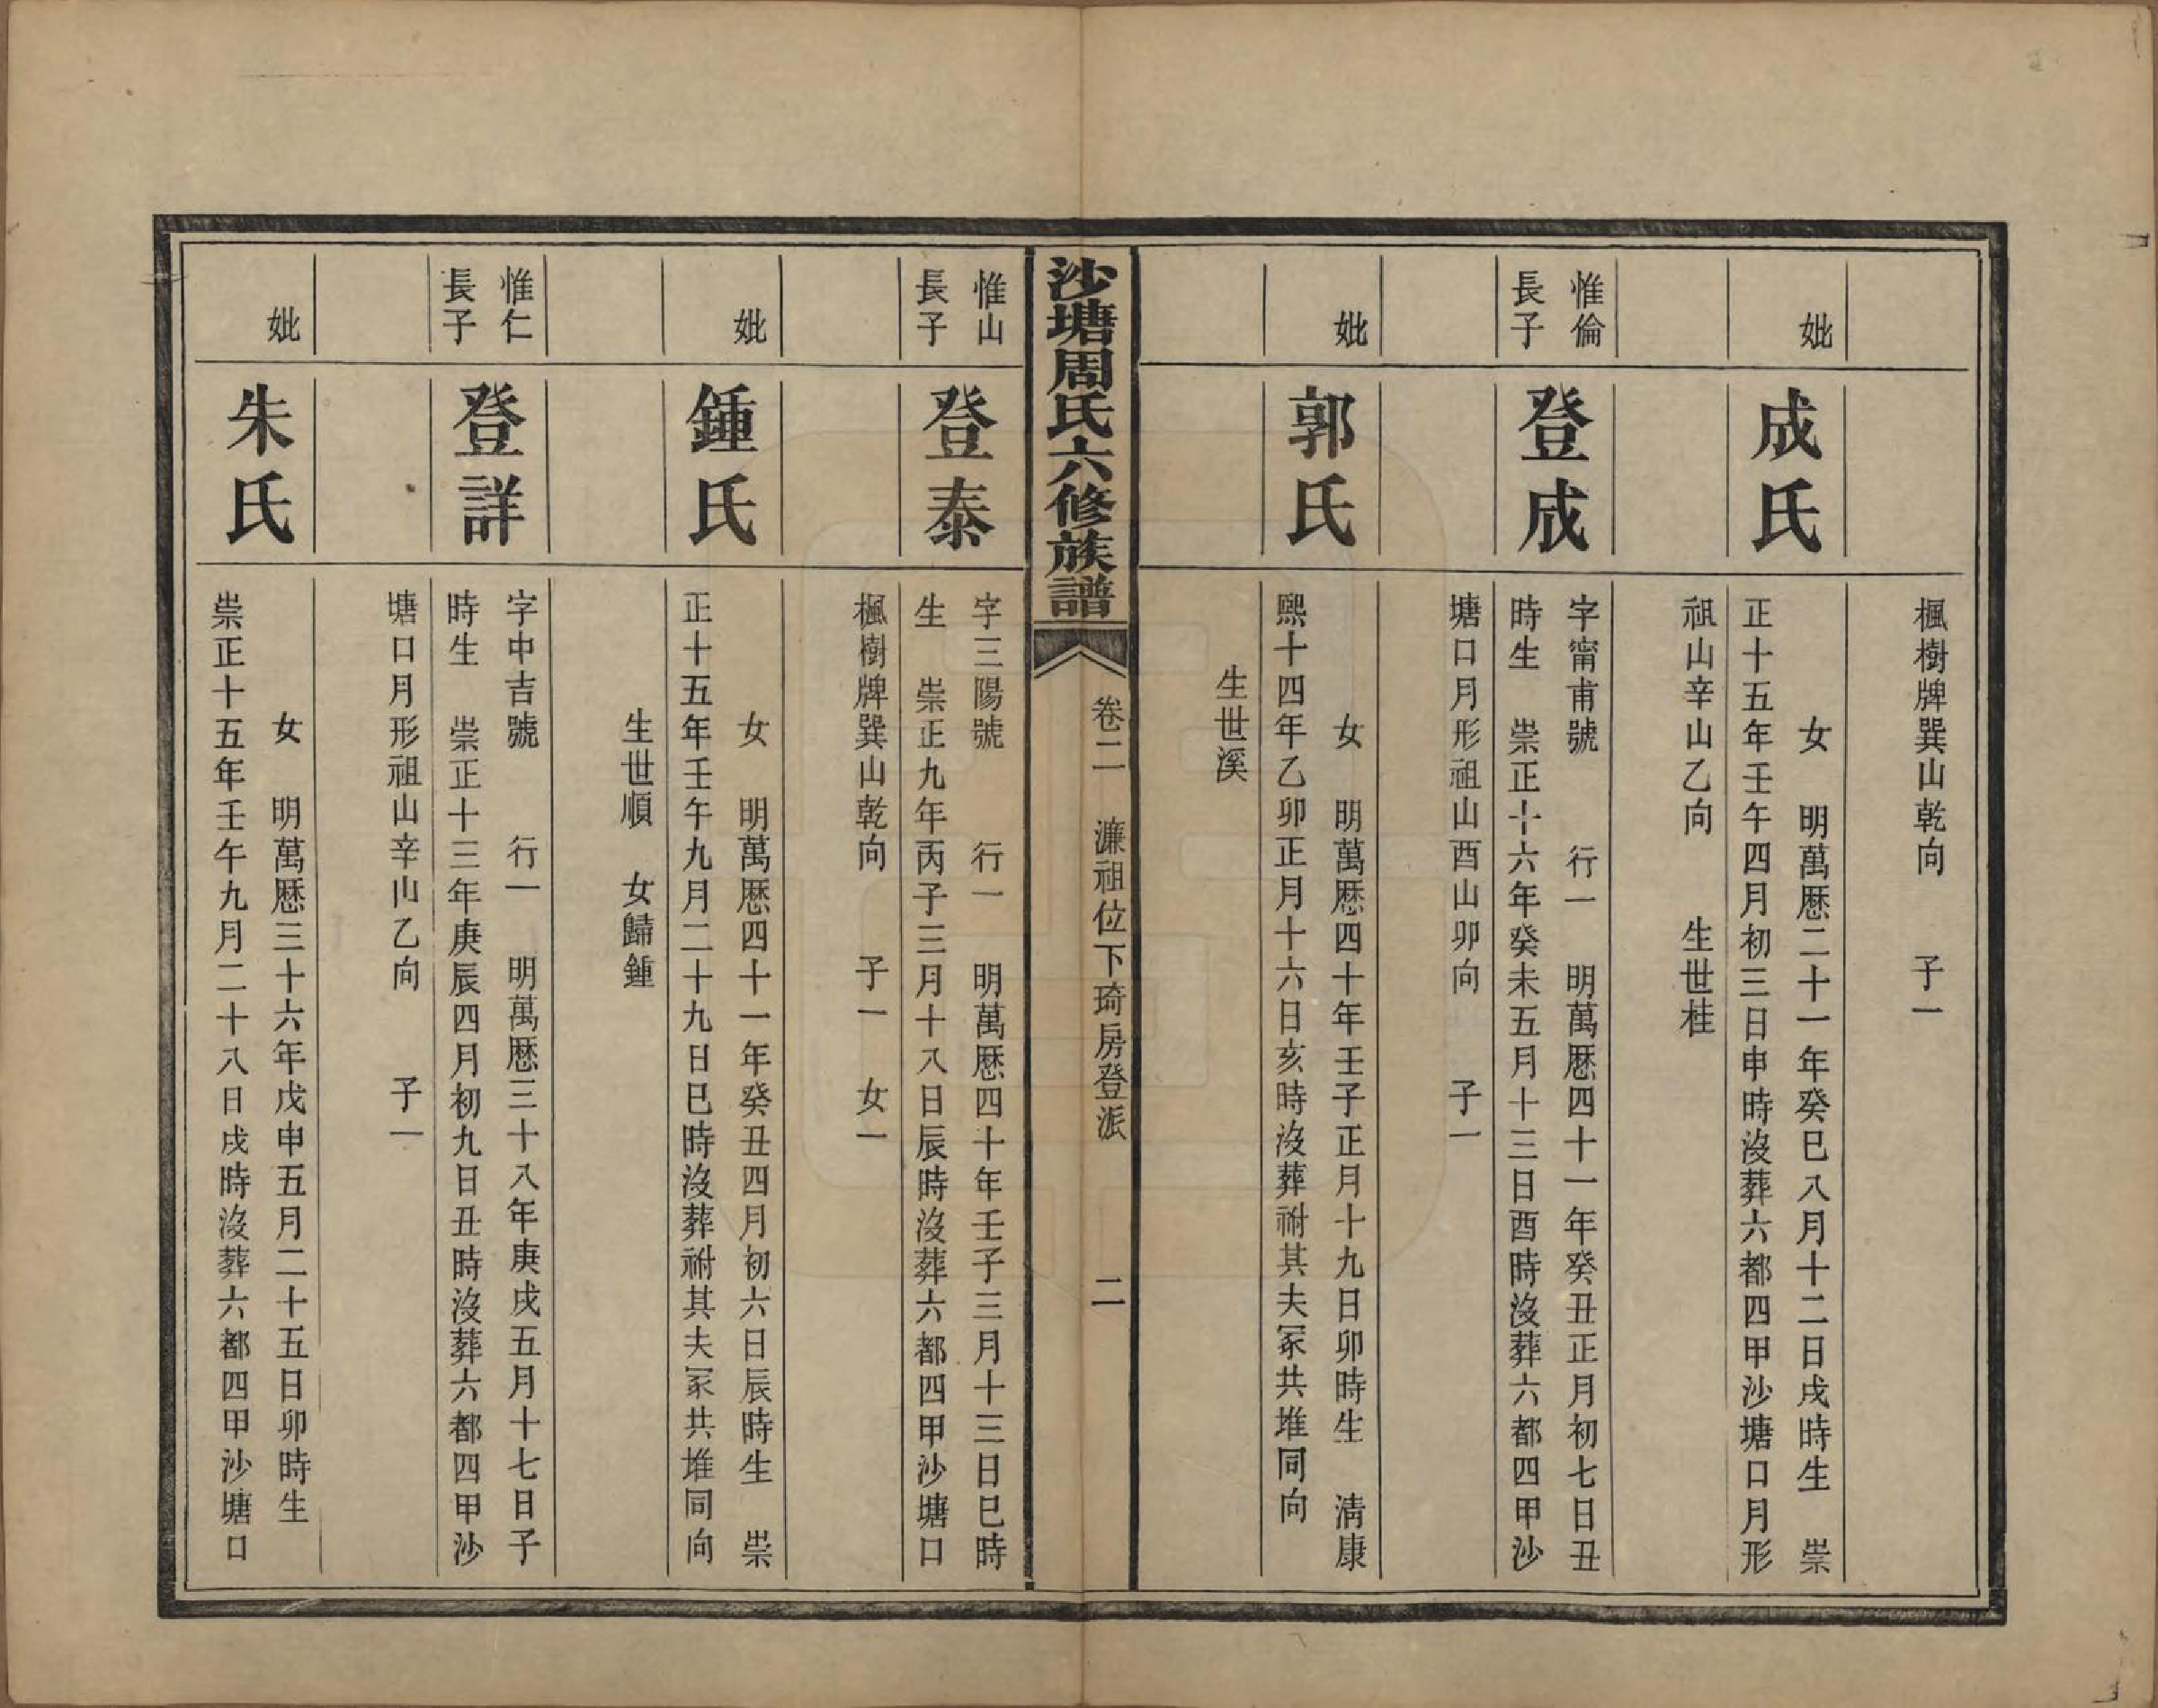 楓樹牌巽山乾向　子一
妣
成氏
女　明萬厯二十一年癸巳八月十二日戌時生　崇
正十五年壬午四月初三日申時沒葬六都四甲沙塘口月形
祖山辛山乙向　生世桂
惟倫
長子
登成
字甯甫號　行一　明萬厯四十一年癸丑正月初七日丑
時生　崇正十六年癸未五月十三日酉時沒葬六都四甲沙
塘口月形祖山酉山卯向　子一
妣
郭氏
女　明萬厯四十年壬子正月十九日卯時生　清康
熙十四年乙卯正月十六日亥時沒葬祔其夫冢共堆同向
生世溪
沙塘周氏六修族譜
卷二　濂祖位下琦房登派　二
惟山
長子
登泰
字三陽號　行一　明萬厯四十年壬子三月十三日巳時
生　崇正九年丙子三月十八日辰時沒葬六都四甲沙塘口
楓樹牌巽山乾向　子一　女一
妣
鍾氏
女　明萬厯四十一年癸丑四月初六日辰時生　崇
正十五年壬午九月二十九日巳時沒葬祔其夫冢共堆同向
生世順　女歸鍾
惟仁
長子
登詳
字中吉號　行一　明萬厯三十八年庚戌五月十七日子
時生　崇正十三年庚辰四月初九日丑時沒葬六都四甲沙
塘口月形祖山辛山乙向　子一
妣
朱氏
女　明萬厯三十六年戊申五月二十五日卯時生
崇正十五年壬午九月二十八日戌時沒葬六都四甲沙塘口